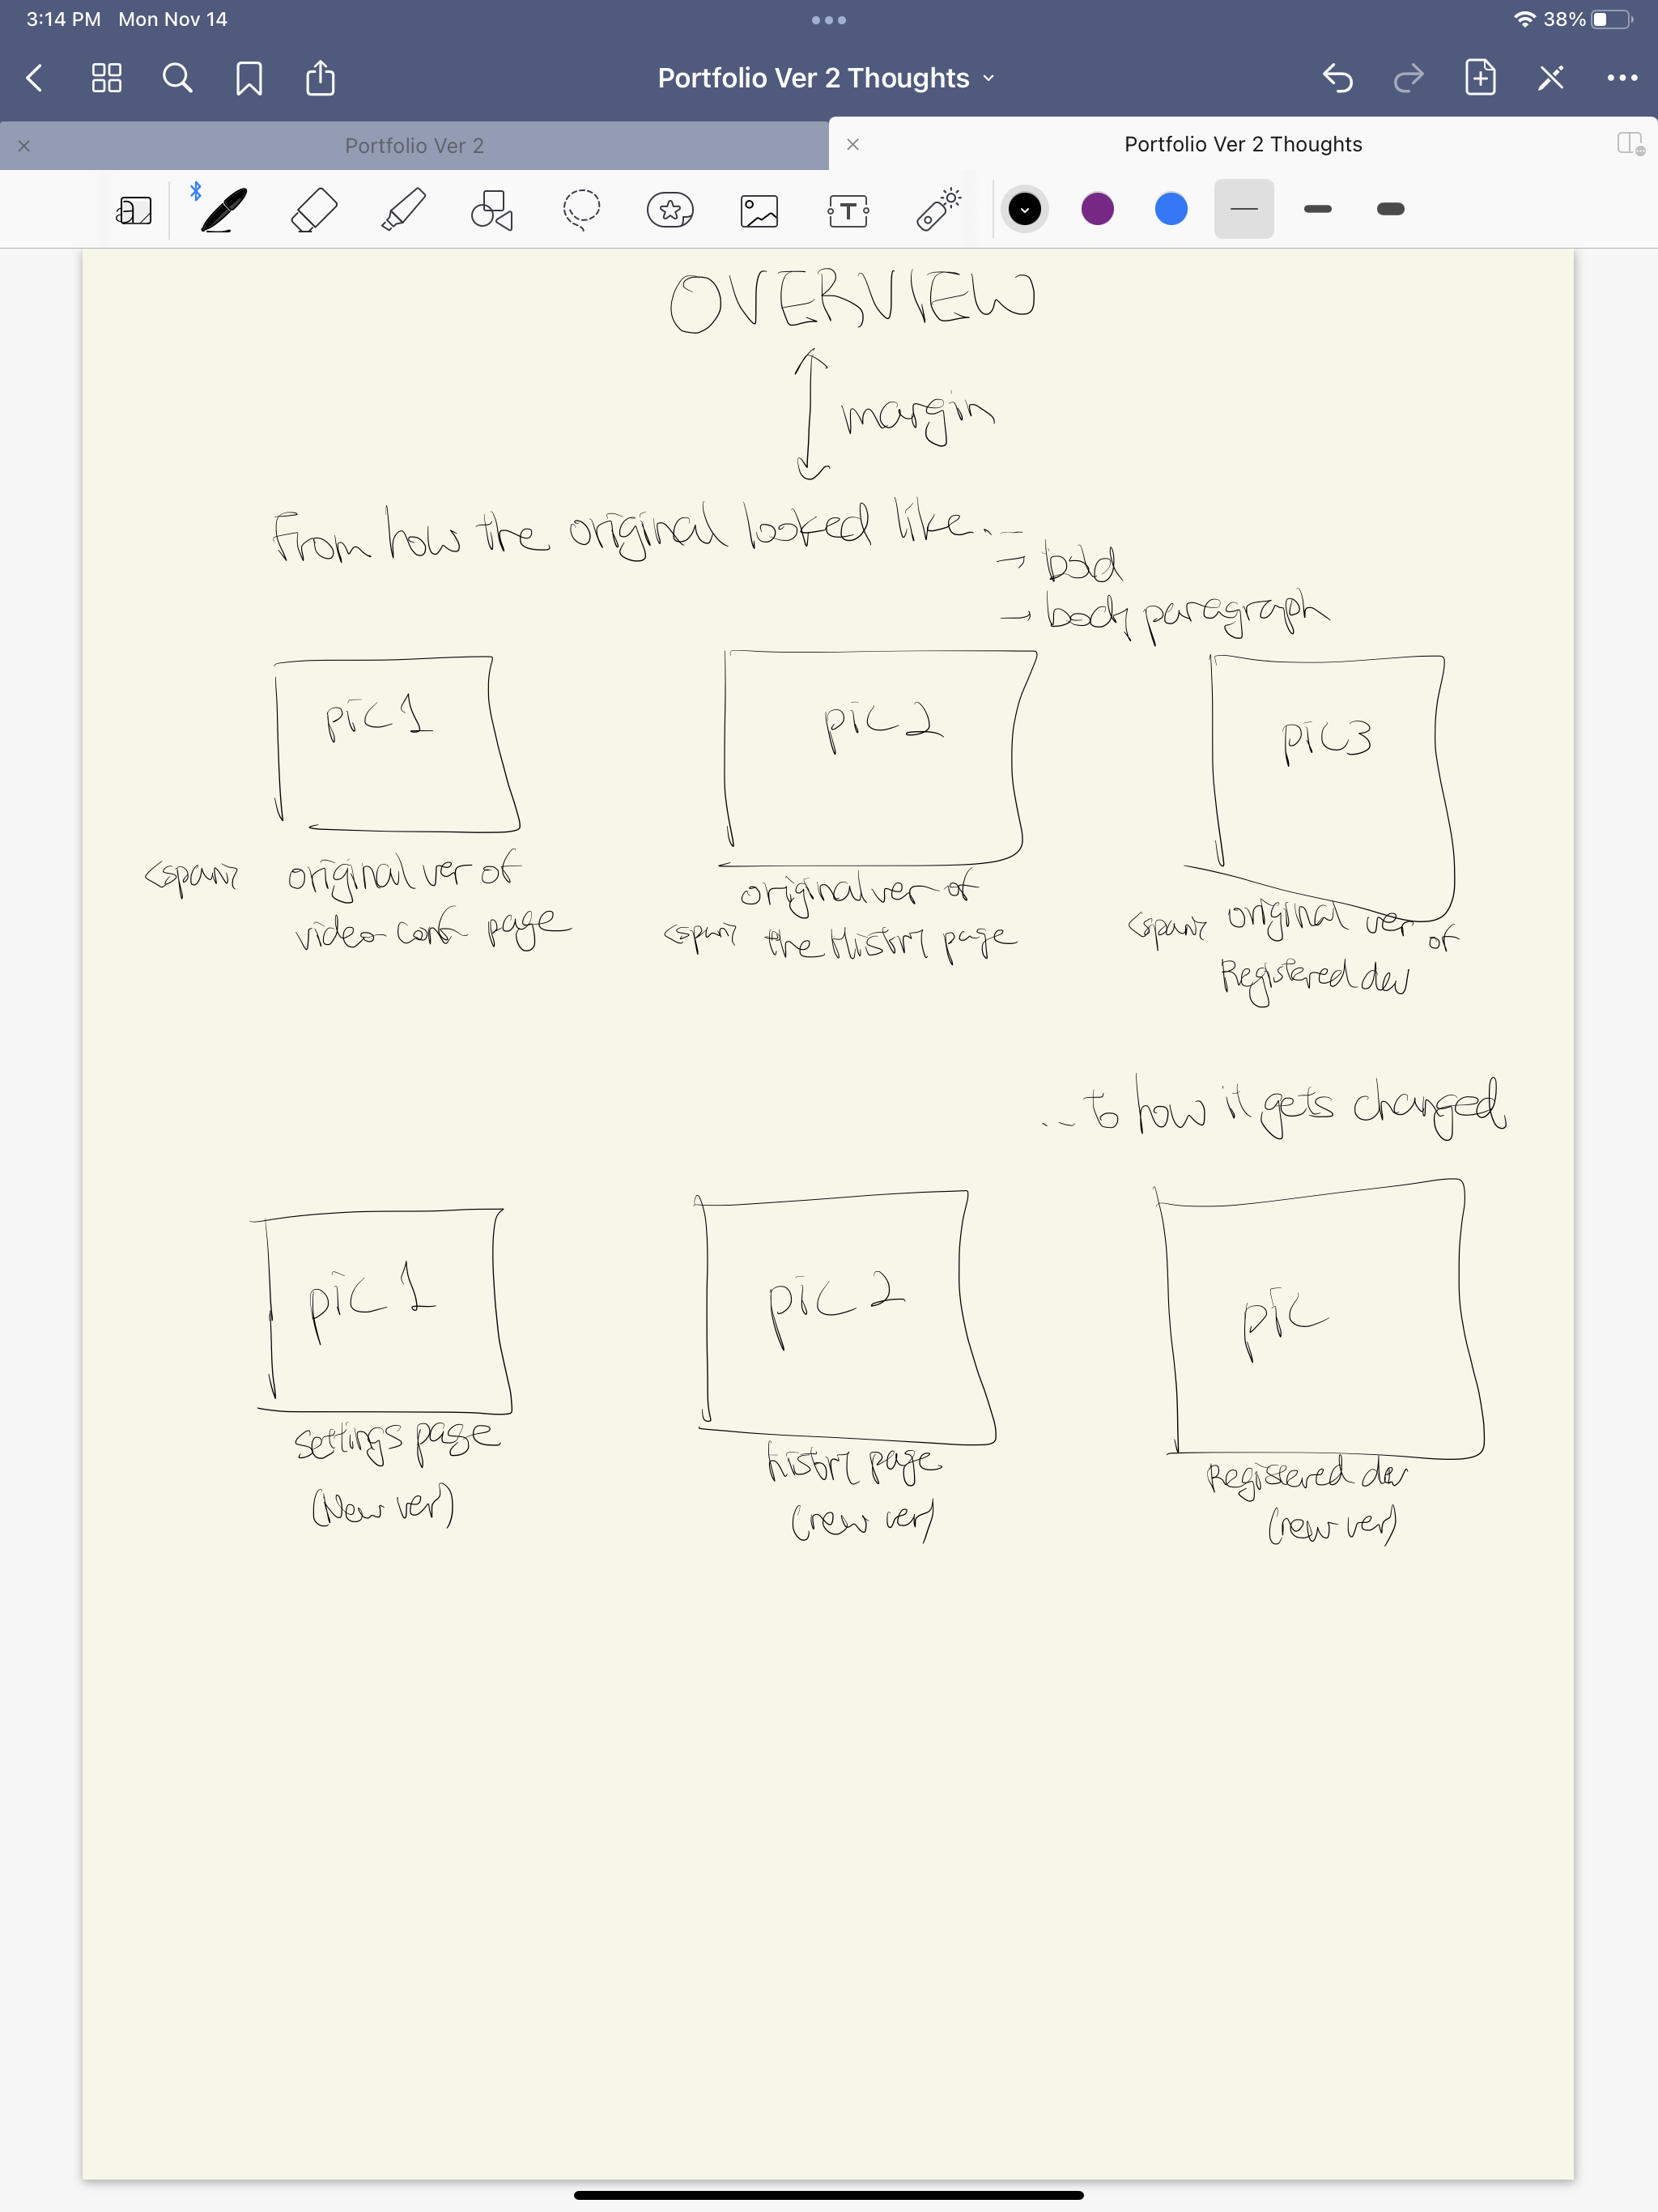 3:14 PM Mon Nov 14
38%
Portfolio Ver 2 Thoughts
Portfolio Ver 2
Portfolio Ver 2 Thoughts
OVERVIEW
margin
From how the original looked like...
→ bold
→ body paragraph
pic 1
pic 2
pic 3
<span> original ver of
video conf page
original ver of
<span> the History page
<span> original ver of
Registered dev
... to how it gets changed
pic 1
pic 2
pic
settings page
(New ver)
history page
(new ver)
Registered dev
(new ver)